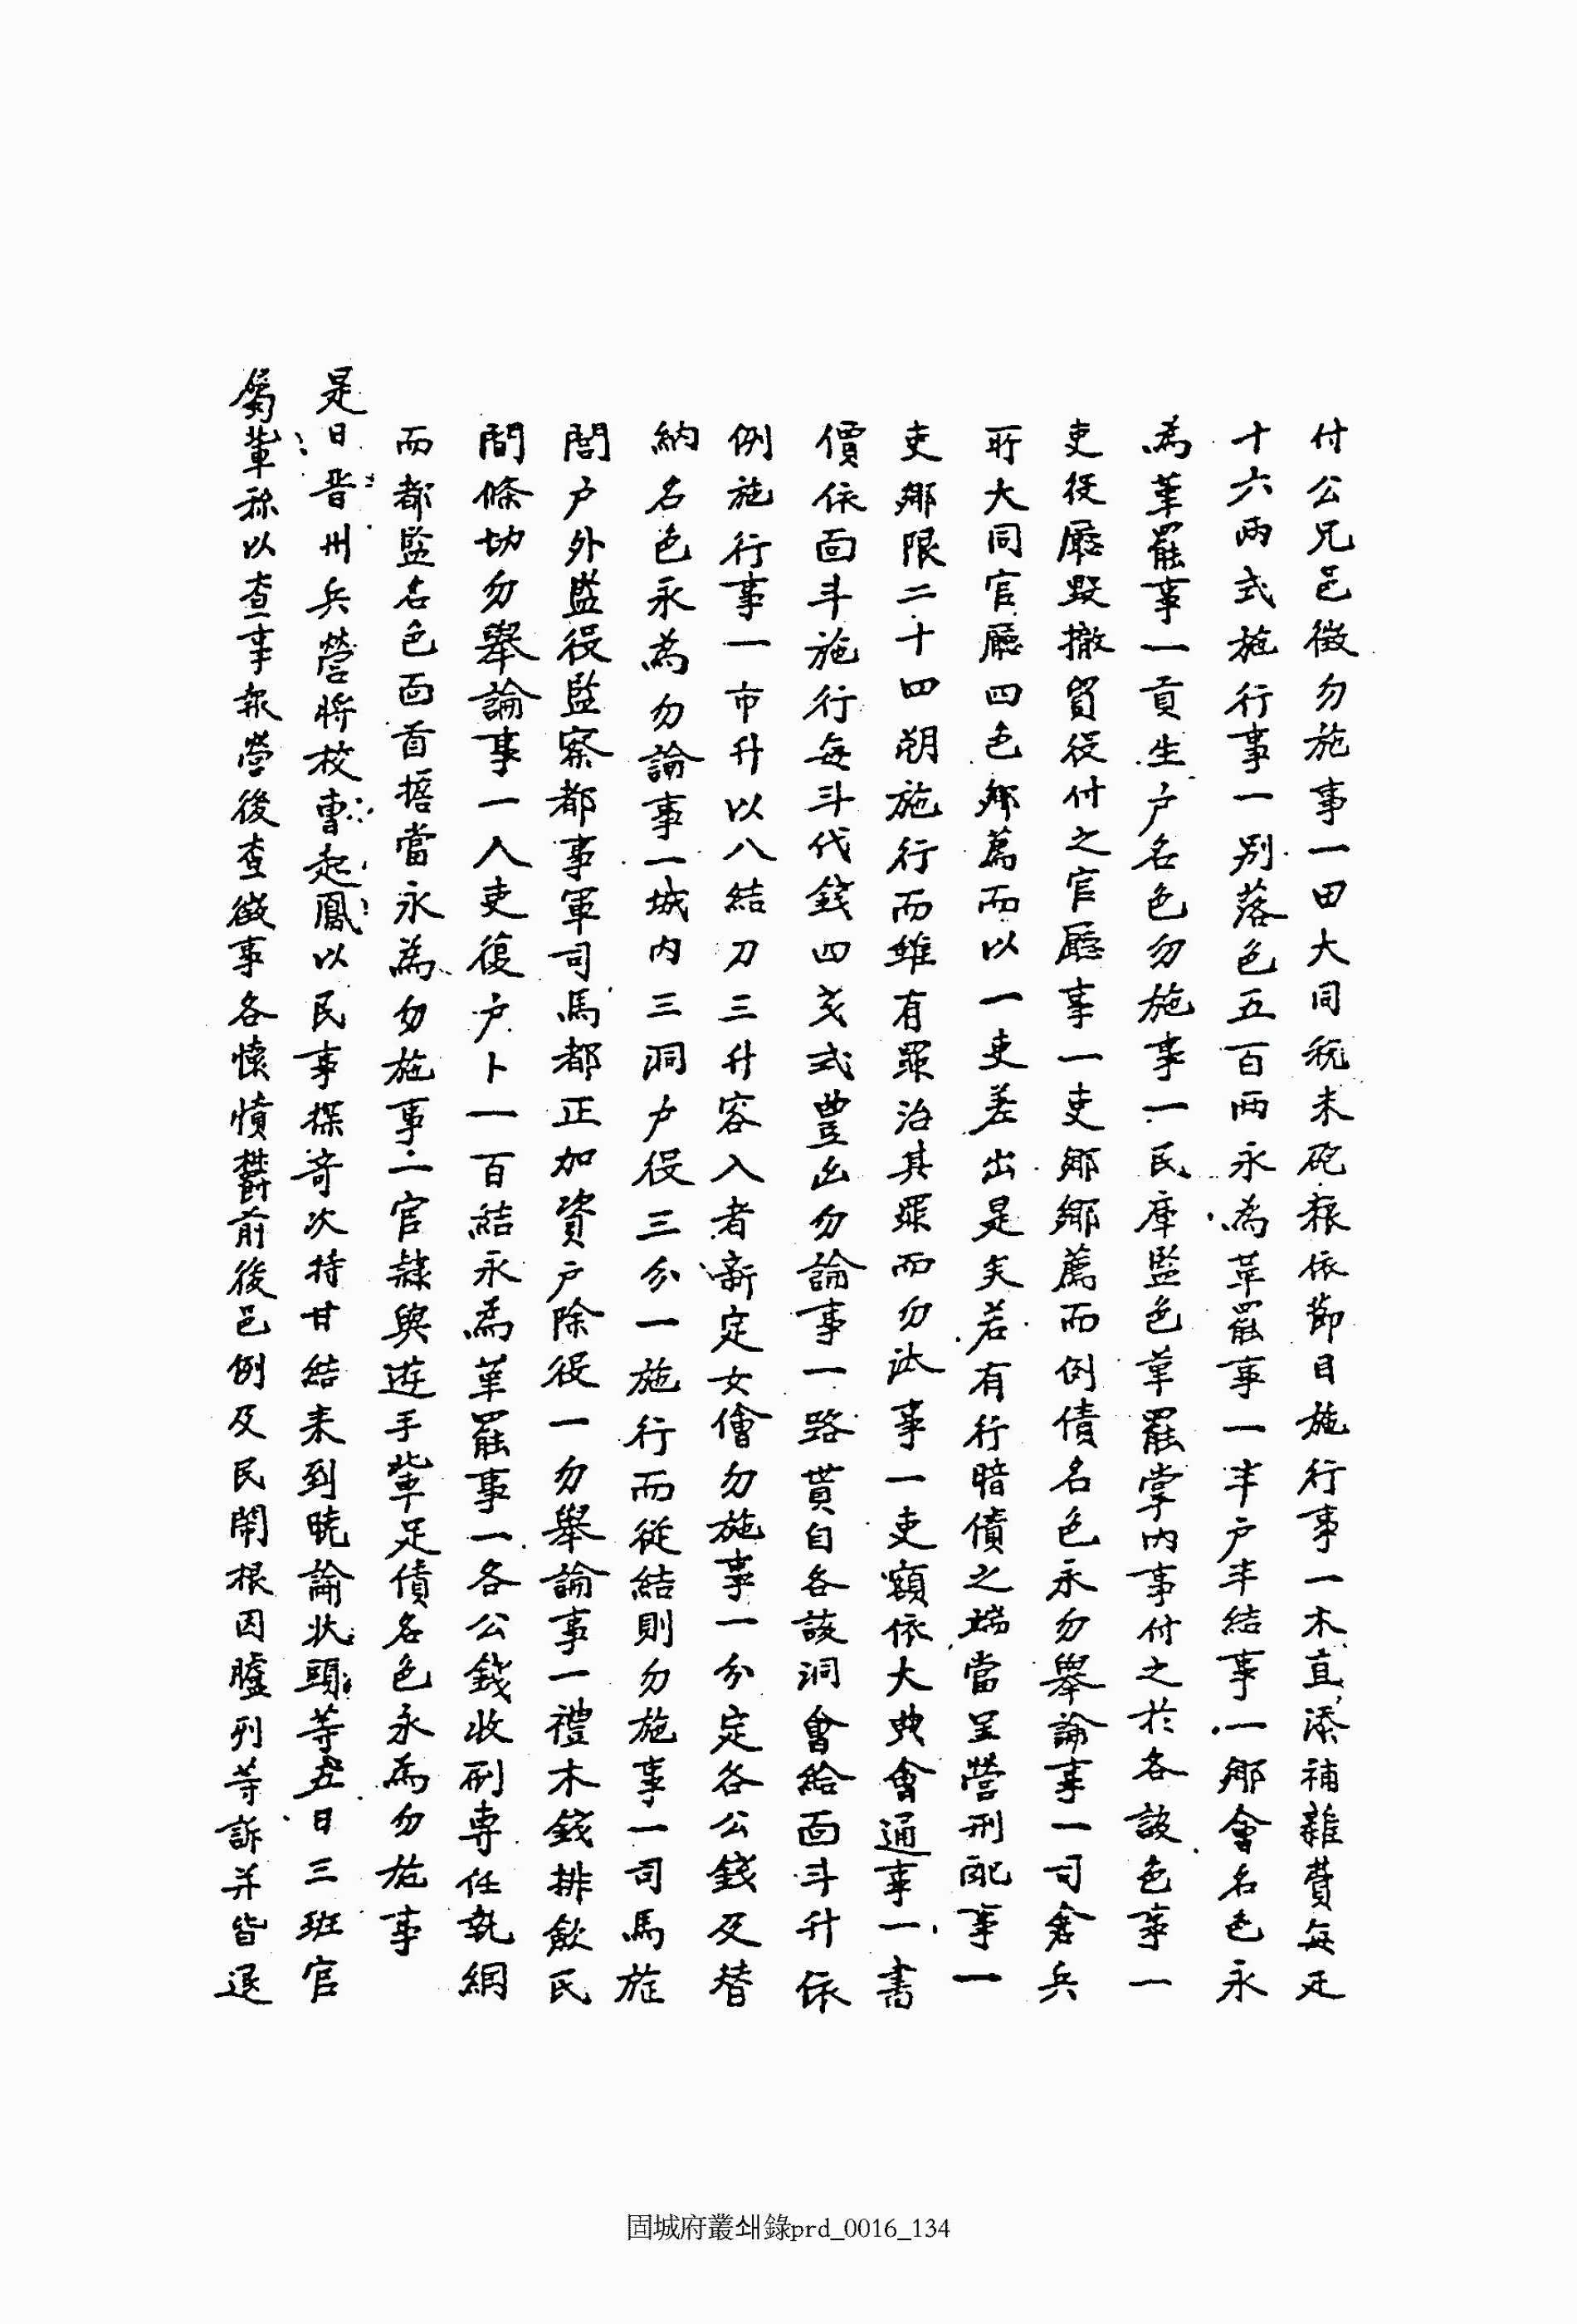 付公兄邑徵勿施事一田大同稅未砲粮依節目施行事一木直添補雜費每疋
十六兩式施行事一別落色五百兩永為革罷事一半戶半結事一鄕會名色永
為革罷事一貢生戶名色勿施事一民庫監色革罷掌內事付之於各該色事一
吏役廳毀撤貿役付之官廳事一吏鄕鄕薦而倒債名色永勿擧論事一司倉兵
所大同官廳四色鄕薦而以一吏差出是矣若有行暗債之端當呈營刑配事一
吏鄕限二十四朔施行而雖有罪治其罪而勿汰事一吏額依大典會通事一書
價依面斗施行每斗代錢四戔式豊凶勿論事一路貰自各該洞會給面斗升依
例施行事一市升以八結刀三升容入者新定女儈勿施事一分定各公錢及替
納名色永為勿論事一城內三洞戶役三分一施行而從結則勿施事一司馬旌
閭戶外監役監察都事軍司馬都正加資戶除役一勿擧論事一禮木錢排斂民
間條切勿擧論事一人吏復戶卜一百結永為革罷事一各公錢收刷專任執綱
而都監名色面首擔當永為勿施事二官隷與遊手輩足債名色永為勿施事
是日晋州兵營將校曺起鳳以民事探奇次持甘結来到曉諭狀頭等五日三班官
屬輩稱以查事報營後查徵事各懷憤欝前後邑例及民鬧根因臚列等訴并皆退